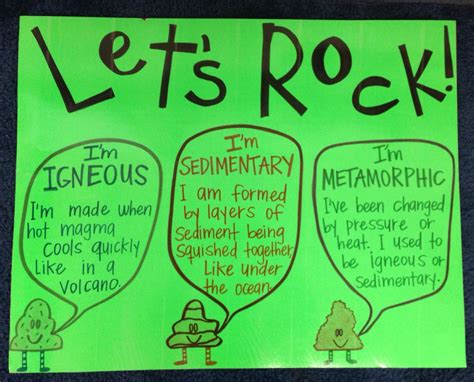 Let's Rock!
I'm
IGNEOUS
I'm made when
hot magma
cools quickly
like in a
volcano.
I'm
SEDIMENTARY
I am formed
by layers of
sediment being
squished together,
like under
the ocean.
I'm
METAMORPHIC
I've been changed
by pressure or
heat. I used to
be igneous or
sedimentary.